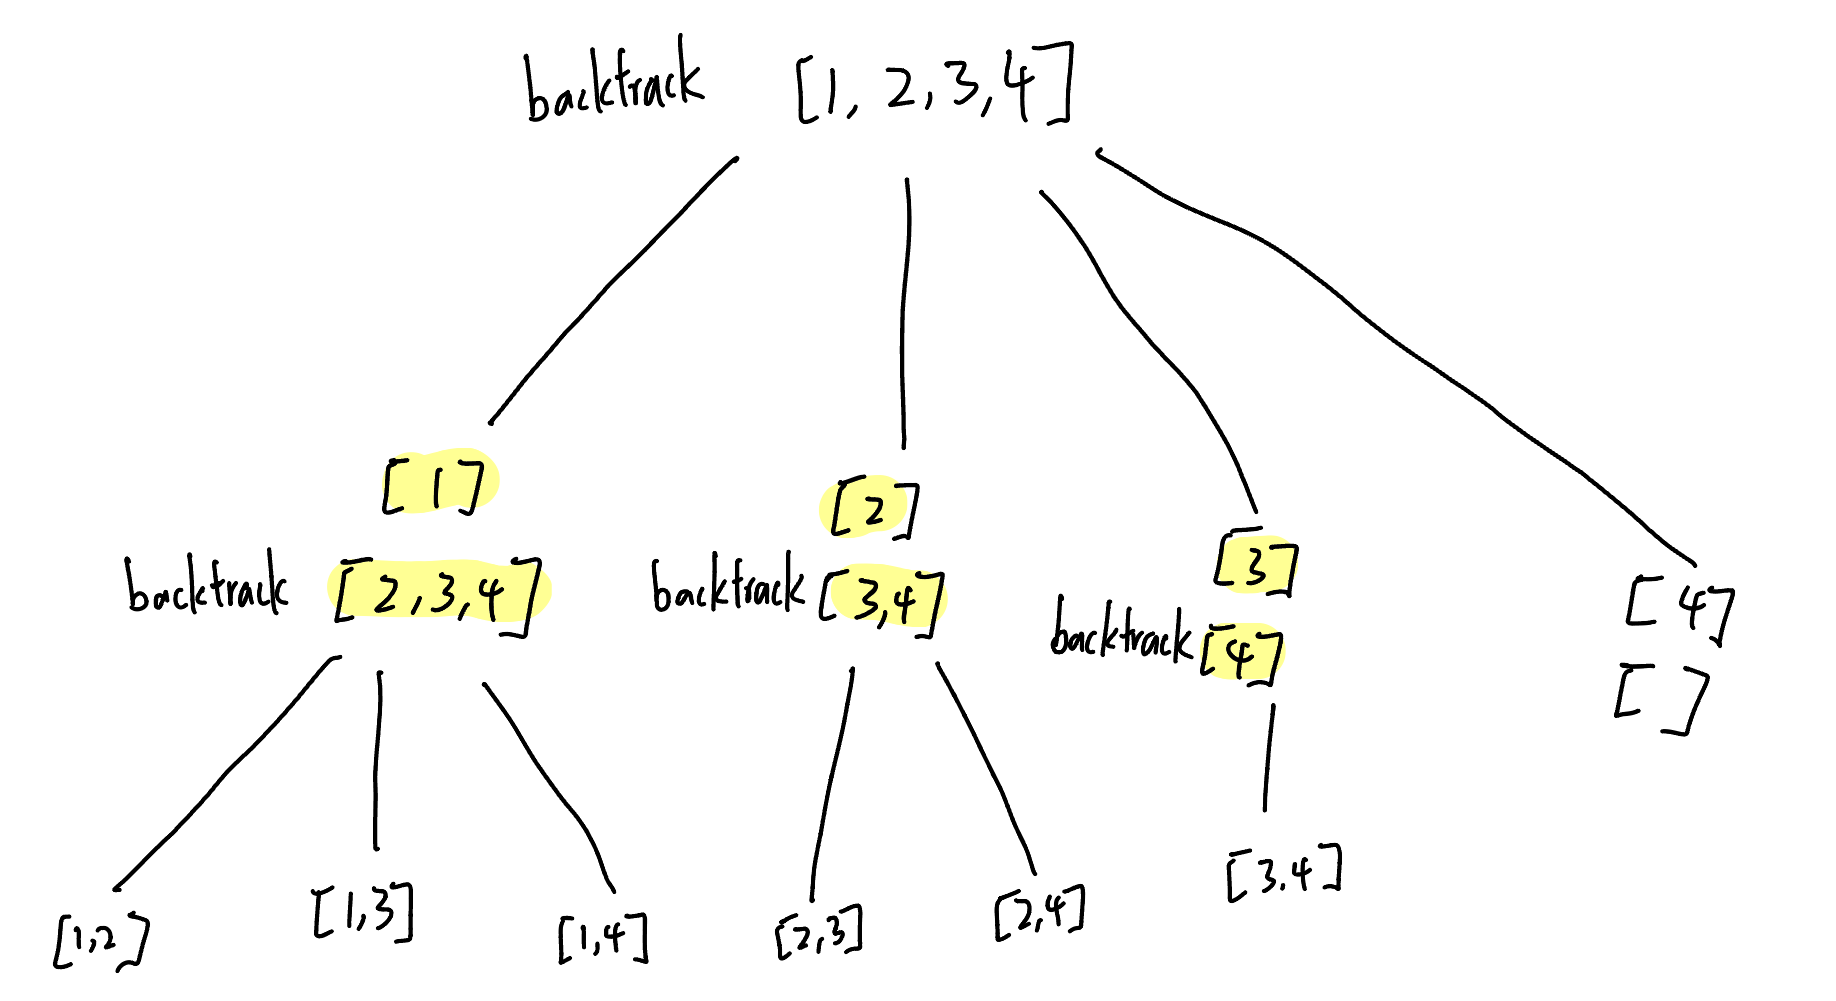 backtrack [1, 2, 3, 4]
[1]
[2]
[3]
[4]
backtrack [2, 3, 4]
backtrack [3, 4]
backtrack [4]
[ ]
[1, 2]
[1, 3]
[1, 4]
[2, 3]
[2, 4]
[3.4]